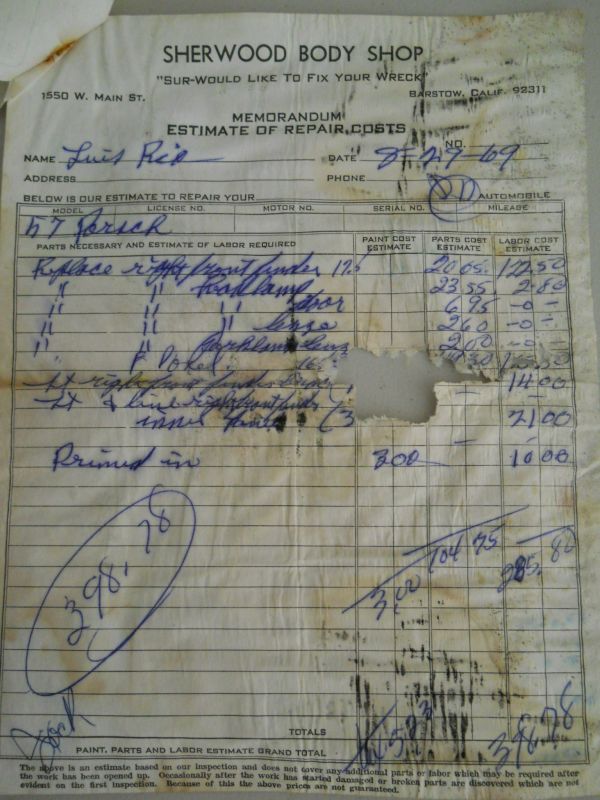 SHERWOOD BODY SHOP
"SUR-WOULD LIKE TO FIX YOUR WRECK"
1550 W. MAIN ST. BARSTOW, CALIF. 92311
MEMORANDUM
ESTIMATE OF REPAIR COSTS
NO.
NAME Luis DATE 8-29-69
ADDRESS PHONE
BELOW IS OUR ESTIMATE TO REPAIR YOUR AUTOMOBILE
MODEL LICENSE NO. MOTOR NO. SERIAL NO. MILEAGE
57 Porsch
PARTS NECESSARY AND ESTIMATE OF LABOR REQUIRED PAINT COST ESTIMATE PARTS COST ESTIMATE LABOR COST ESTIMATE
Replace right front finder 17.5 20.05 122.50
" " 23.55 2.80
" " " door 6.95 -0-
" " " lense 2.60 -0-
" " 2.00 -0-
right front finder 14.00
& line right front finder 21.00
inner
Primed in 3.00 10.00
3.00 104.75
398.78
TOTALS
PAINT, PARTS AND LABOR ESTIMATE GRAND TOTAL 398.78
The above is an estimate based on our inspection and does not cover any additional parts or labor which may be required after
the work has been opened up. Occasionally after the work has started damaged or broken parts are discovered which are not
evident on the first inspection. Because of this the above prices are not guaranteed.